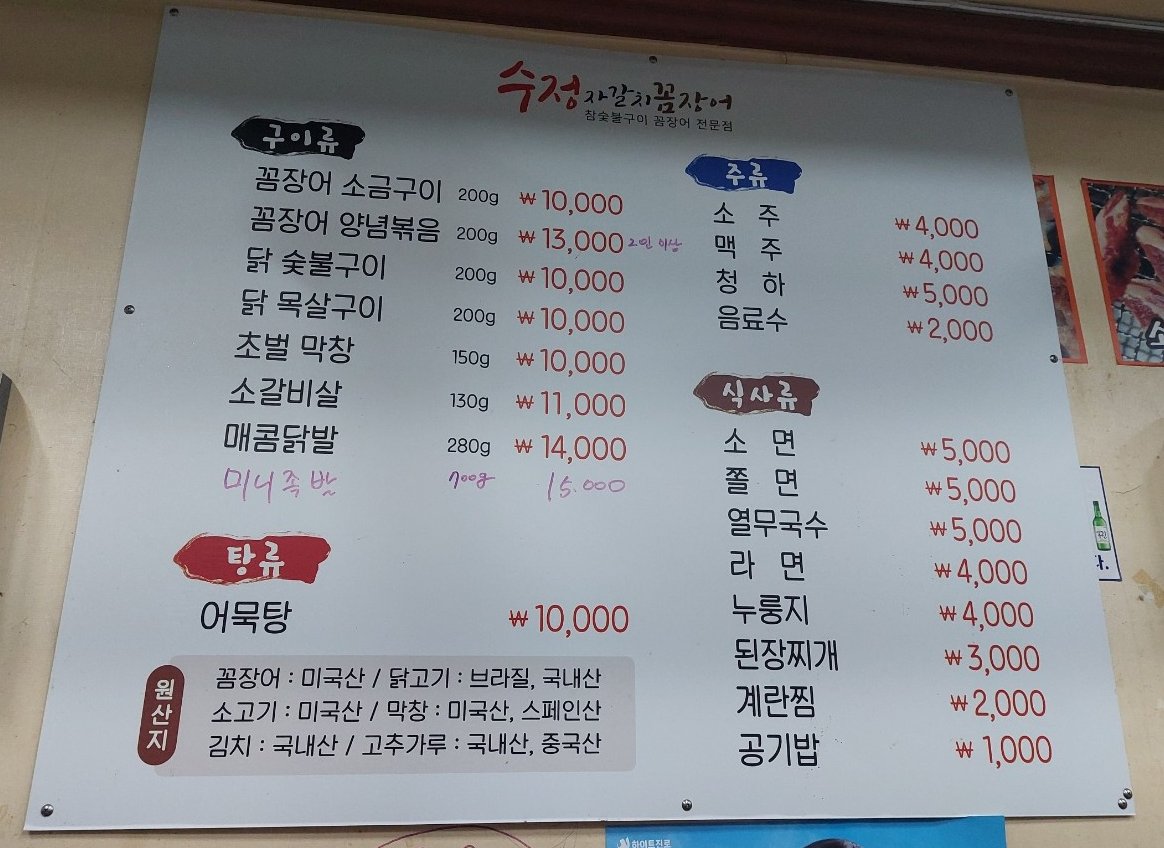 수정 자갈치꼼장어
참숯불구이 꼼장어 전문점
구이류
꼼장어 소금구이 200g ₩10,000
꼼장어 양념볶음 200g ₩13,000 2인 이상
닭 숯불구이 200g ₩10,000
닭 목살구이 200g ₩10,000
초벌 막창 150g ₩10,000
소갈비살 130g ₩11,000
매콤닭발 280g ₩14,000
미니족발 700g 15.000
탕류
어묵탕 ₩10,000
원산지
꼼장어 : 미국산 / 닭고기 : 브라질, 국내산
소고기 : 미국산 / 막창 : 미국산, 스페인산
김치 : 국내산 / 고추가루 : 국내산, 중국산
주류
소 주 ₩4,000
맥 주 ₩4,000
청 하 ₩5,000
음료수 ₩2,000
식사류
소 면 ₩5,000
쫄 면 ₩5,000
열무국수 ₩5,000
라 면 ₩4,000
누룽지 ₩4,000
된장찌개 ₩3,000
계란찜 ₩2,000
공기밥 ₩1,000
하이트진로